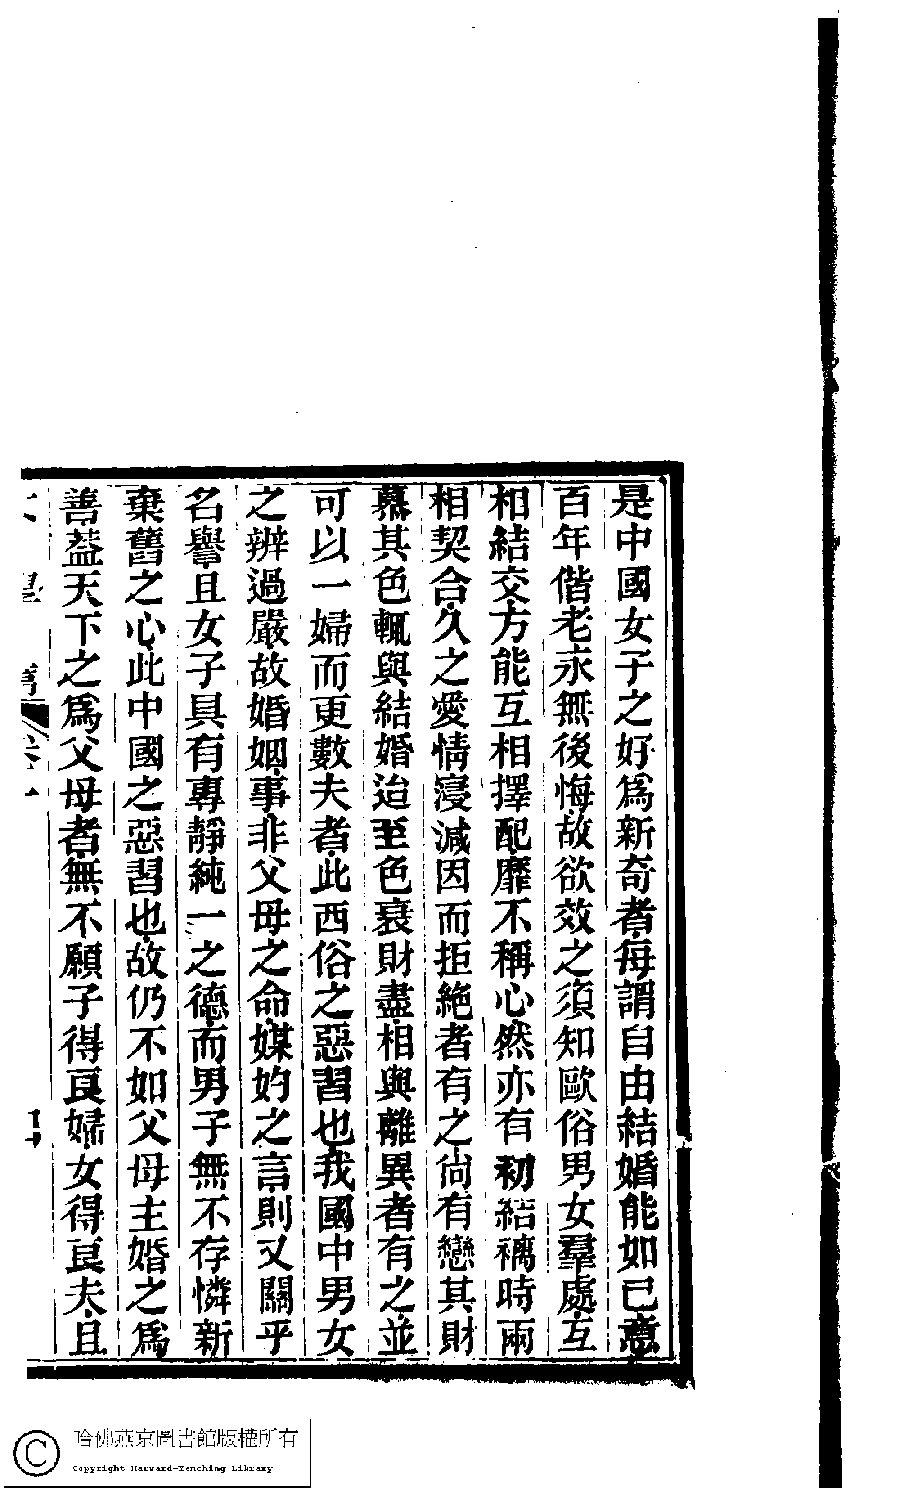 是中國女子之好爲新奇者每謂自由結婚能如己意
百年偕老永無後悔故欲效之須知歐俗男女羣處互
相結交方能互相擇配靡不稱心然亦有初結褵時兩
相契合久之愛情寖減因而拒絶者有之尚有戀其財
慕其色輒與結婚迨至色衰財盡相與離異者有之並
可以一婦而更數夫者此西俗之惡習也我國中男女
之辨過嚴故婚姻事非父母之命媒妁之言則又關乎
名譽且女子具有專靜純一之德而男子無不存憐新
棄舊之心此中國之惡習也故仍不如父母主婚之爲
善葢天下之爲父母者無不願子得良婦女得良夫且
哈佛燕京圖書館版權所有
Copyright Harvard-Yenching Library